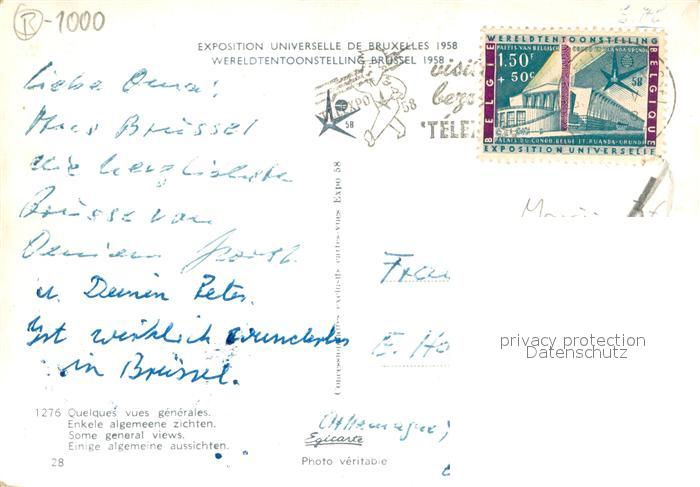 R-1000
EXPOSITION UNIVERSELLE DE BRUXELLES 1958
WERELDTENTOONSTELLING BRUSSEL 1958
Liebe Oma!
Aus Brüssel
die herzlichsten
Grüsse von
Deinem
u. Deinen Peter.
Ist wirklich wunderbar
in Brüssel.
EXPO 58
58
WERELDTENTOONSTELLING
BELGIE
BELGIQUE
1.50F
+50c
58
PALAIS DU CONGO BELGE ET RUANDA-URUNDI
EXPOSITION UNIVERSELLE
Concessionnaires exclusifs cartes-vues Expo 58
Frau
E. Ho
Allemagne
privacy protection
Datenschutz
1276 Quelques vues générales.
Enkele algemeene zichten.
Some general views.
Einige algemeine aussichten.
28
Egicarte
Photo véritable